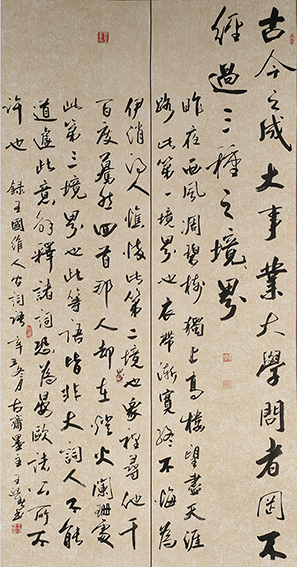 古今之成大事業大學問者罔不
經過三種之境界
昨夜西風凋碧樹獨上高樓望盡天涯
路此第一境界也衣帶漸寬終不悔為
伊消得人憔悴此第二境也衆裡尋他千
百度驀然回首那人却在燈火闌珊處
此第三境界也此等語皆非大詞人不能
道遽此意解釋諸詞恐為晏歐諸公所不
許也 錄王國維人間詞語 辛丑 月 古齋墨主王